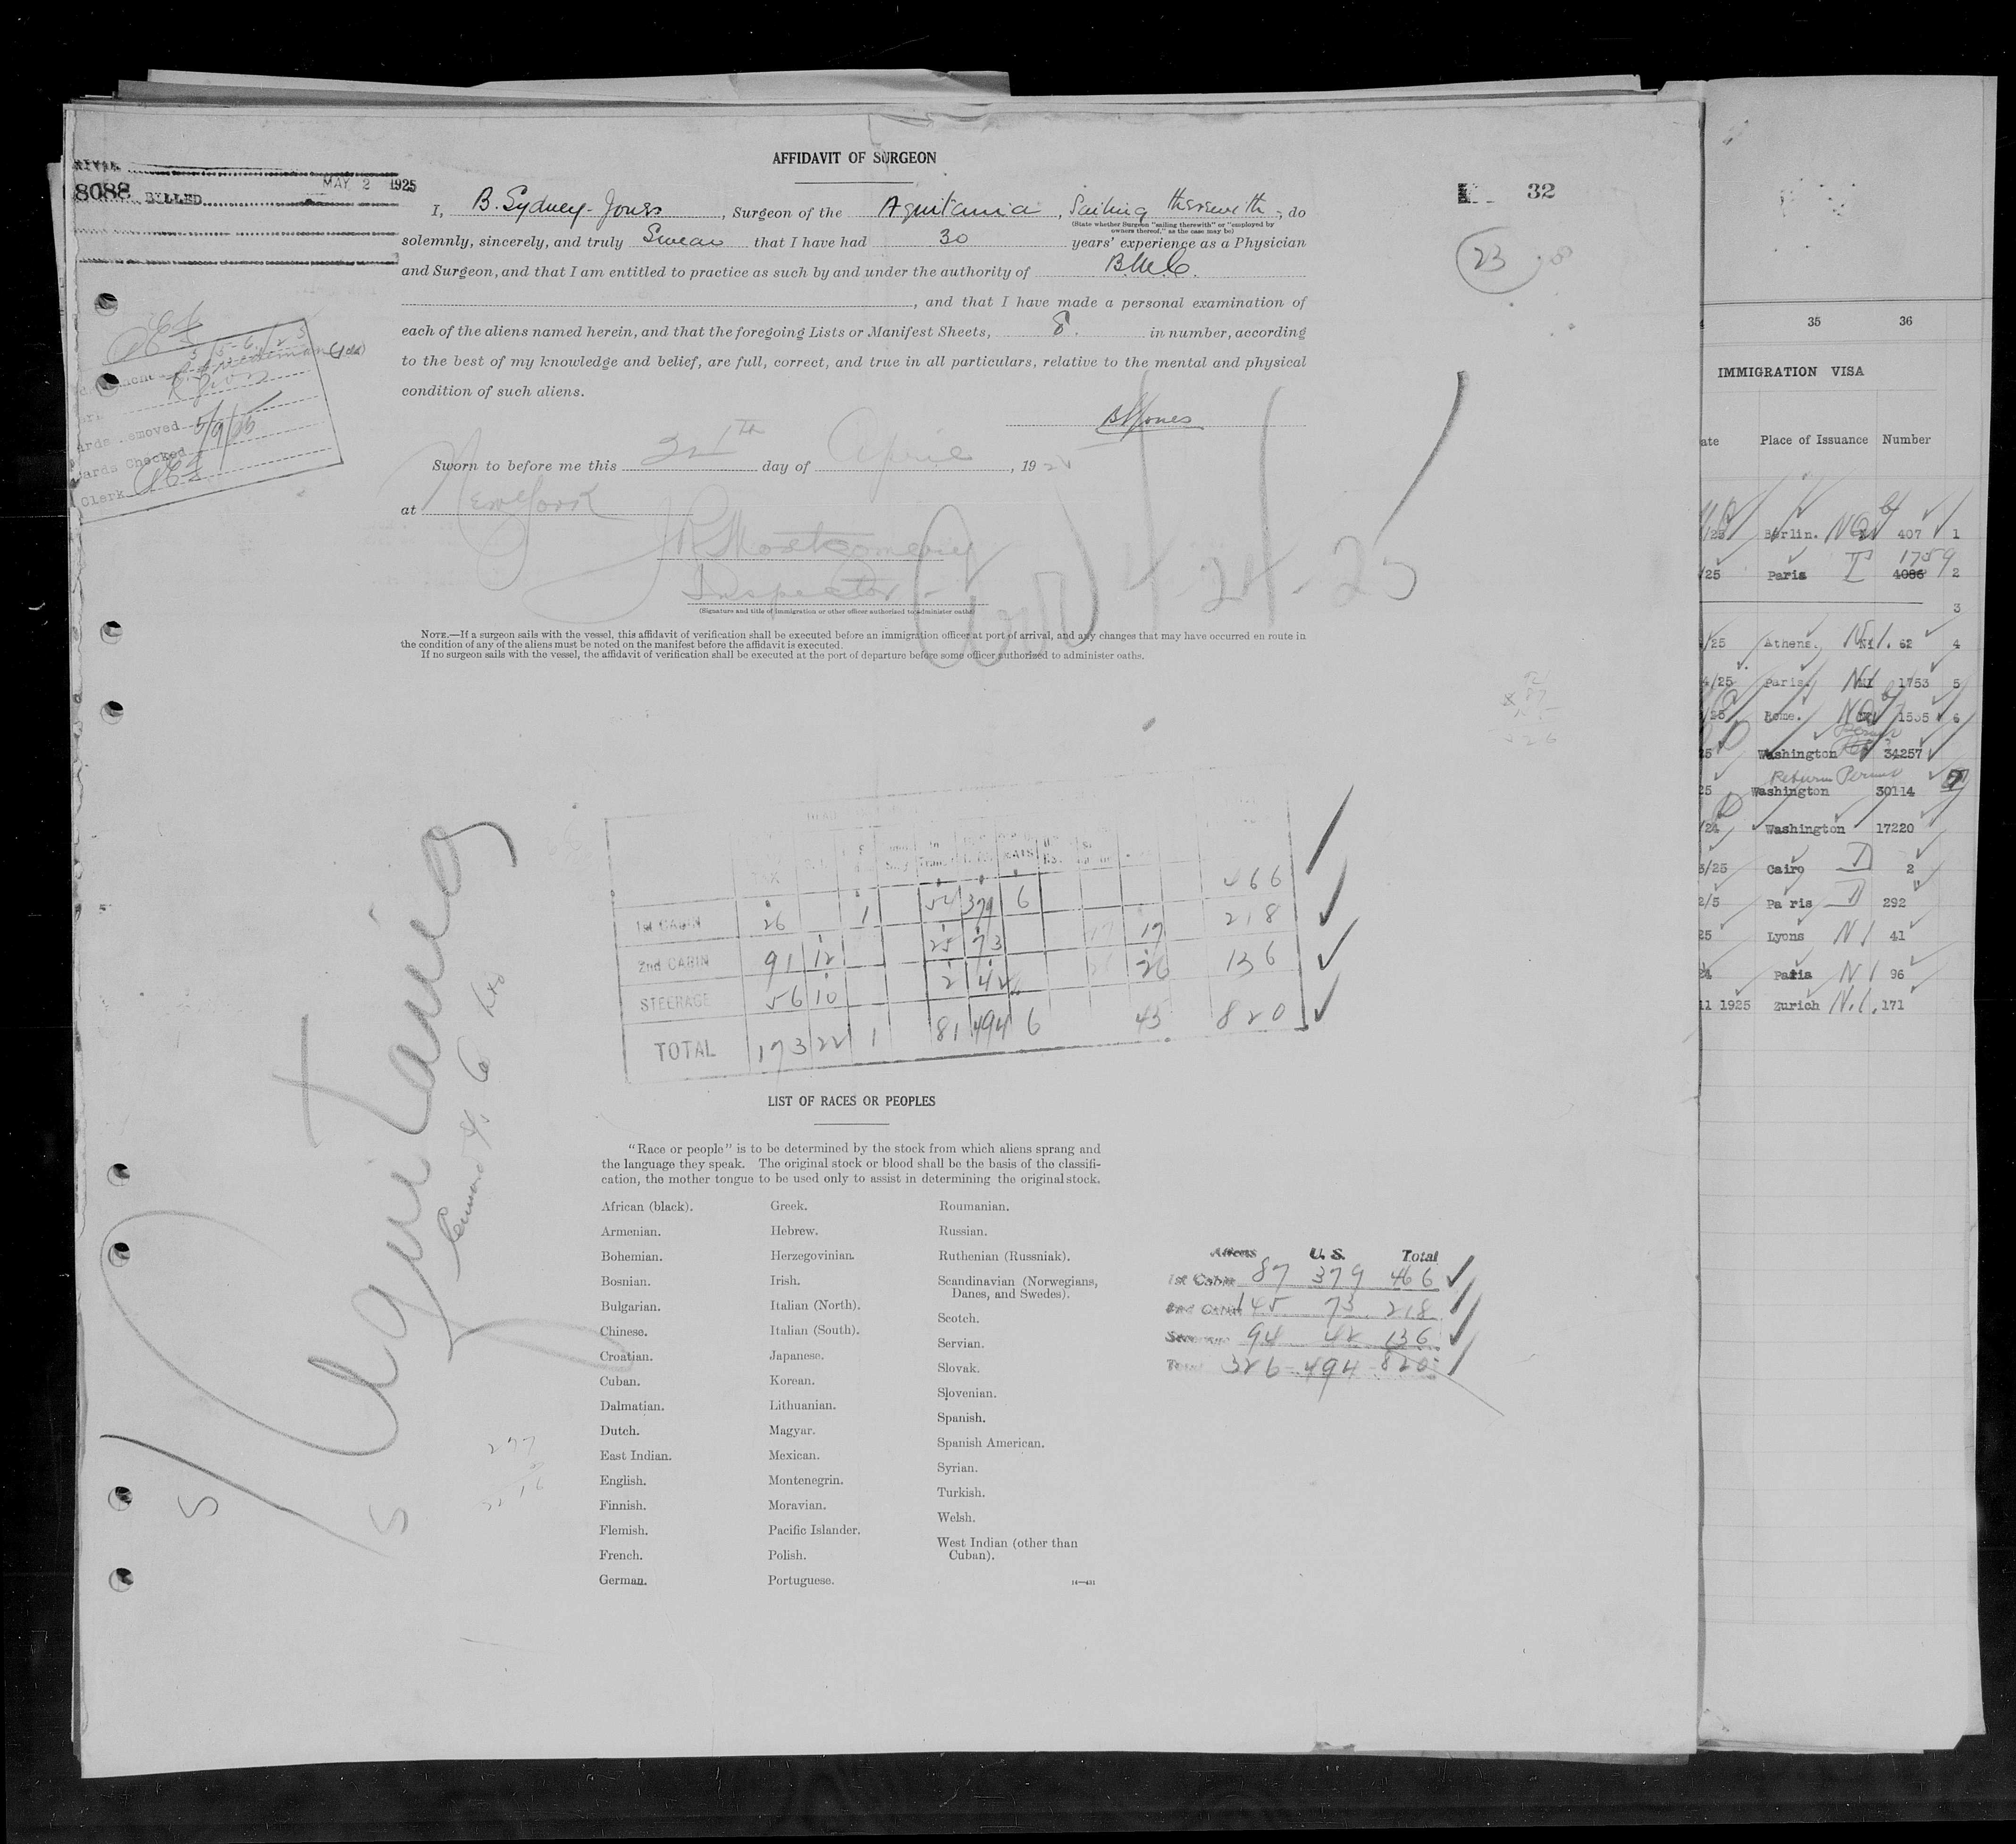 AFFIDAVIT OF SURGEON
8088 BILLED MAY 2 1925
32
23
I, B. Sydney-Jones, Surgeon of the Aquitania, Sailing therewith, do
(State whether Surgeon "sailing therewith" or "employed by
owners thereof," as the case may be)
solemnly, sincerely, and truly Swear that I have had 30 years' experience as a Physician
and Surgeon, and that I am entitled to practice as such by and under the authority of
, and that I have made a personal examination of
each of the aliens named herein, and that the foregoing Lists or Manifest Sheets, 8. in number, according
to the best of my knowledge and belief, are full, correct, and true in all particulars, relative to the mental and physical
condition of such aliens.
Sworn to before me this day of April, 1925
at New York
JR Montgomery
Inspector
(Signature and title of immigration or other officer authorized to administer oaths)
4-24-25
NOTE.—If a surgeon sails with the vessel, this affidavit of verification shall be executed before an immigration officer at port of arrival, and any changes that may have occurred en route in
the condition of any of the aliens must be noted on the manifest before the affidavit is executed.
If no surgeon sails with the vessel, the affidavit of verification shall be executed at the port of departure before some officer authorized to administer oaths.
Cards Removed 5/9/25
Cards Checked
Clerk
TAX
1st CABIN 26 1 54 379 6 466
2nd CABIN 91 12 25 73 17 17 218
STEERAGE 56 10 2 42 26 26 136
TOTAL 173 22 1 81 494 6 43 820
Aquitania
LIST OF RACES OR PEOPLES
"Race or people" is to be determined by the stock from which aliens sprang and
the language they speak. The original stock or blood shall be the basis of the classifi-
cation, the mother tongue to be used only to assist in determining the original stock.
African (black).
Armenian.
Bohemian.
Bosnian.
Bulgarian.
Chinese.
Croatian.
Cuban.
Dalmatian.
Dutch.
East Indian.
English.
Finnish.
Flemish.
French.
German.
Greek.
Hebrew.
Herzegovinian.
Irish.
Italian (North).
Italian (South).
Japanese.
Korean.
Lithuanian.
Magyar.
Mexican.
Montenegrin.
Moravian.
Pacific Islander.
Polish.
Portuguese.
Roumanian.
Russian.
Ruthenian (Russniak).
Scandinavian (Norwegians,
Danes, and Swedes).
Scotch.
Servian.
Slovak.
Slovenian.
Spanish.
Spanish American.
Syrian.
Turkish.
Welsh.
West Indian (other than
Cuban).
14—431
Aliens U. S. Total
1st Cabin 87 379 466
2nd Cabin 145 73 218
Steerage 94 42 136
Total 326 494 820
35 36
IMMIGRATION VISA
Place of Issuance Number
/25 Berlin. 407 1
/25 Paris 4086 1759 2
3
/25 Athens. 62 4
4/25 Paris. 1753 5
/25 Rome. 1535 6
25 Washington 34257
Return Permit
25 Washington 30114
/24 Washington 17220
3/25 Cairo 2
2/5 Paris 292
25 Lyons 41
24 Paris 96
11 1925 Zurich 171